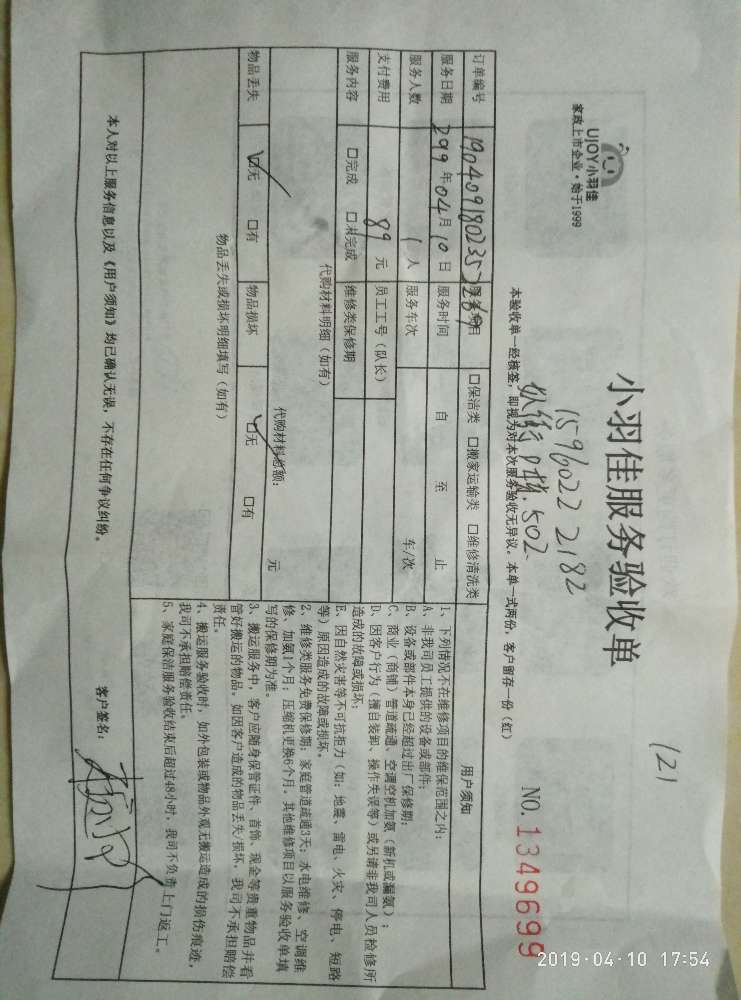 UJOY小羽佳
家政上市企业·始于1999
小羽佳服务验收单
121
NO. 1349699
1596022 2182
502
本验收单一经核签，即视为对本次服务验收无异议。本单一式两份，客户留存一份（红）
订单编号 190409180235 269 服务类目 口保洁类 口搬家运输类 口维修清洗类
服务日期 299年04月10日 服务时间 自 至 止
服务人数 1人 服务车次 车/次
支付费用 89元 员工工号（队长）
服务内容 口完成 口未完成 维修类保修期
代购材料明细（如有）
代购材料总额： 元
物品丢失 口无 口有 物品损坏 口无 口有
物品丢失或损坏明细填写（如有）
用户须知
1、下列情况不在维修项目的维保范围之内：
A、非我司员工提供的设备或部件；
B、设备或部件本身已经超过出厂保修期；
C、商业（商铺）管道疏通、空调空机加氨（新机或漏氨）；
D、因客户行为（擅自装卸、操作失误等）或另请非我司人员检修所
造成的故障或损坏；
E、因自然灾害等不可抗拒力（如：地震、雷电、火灾、停电、短路
等）原因造成的故障或损坏。
2、维修类服务免费保修期：家庭管道疏通3天；水电维修、空调维
修、加氨1个月；压缩机更换6个月，其他维修项目以服务验收单填
写的保修期为准。
3、搬运服务中，客户应随身保管证件、首饰、现金等贵重物品并看
管好搬运的物品。如因客户造成的物品丢失/损坏，我司不承担赔偿
责任。
4、搬运服务验收时，如外包装或物品外观无搬运造成的损伤痕迹，
我司不承担赔偿责任。
5、家庭保洁服务验收结束后超过48小时，我司不负责上门返工。
本人对以上服务信息以及《用户须知》均已确认无误，不存在任何争议纠纷。
客户签名：
2019-04-10 17:54